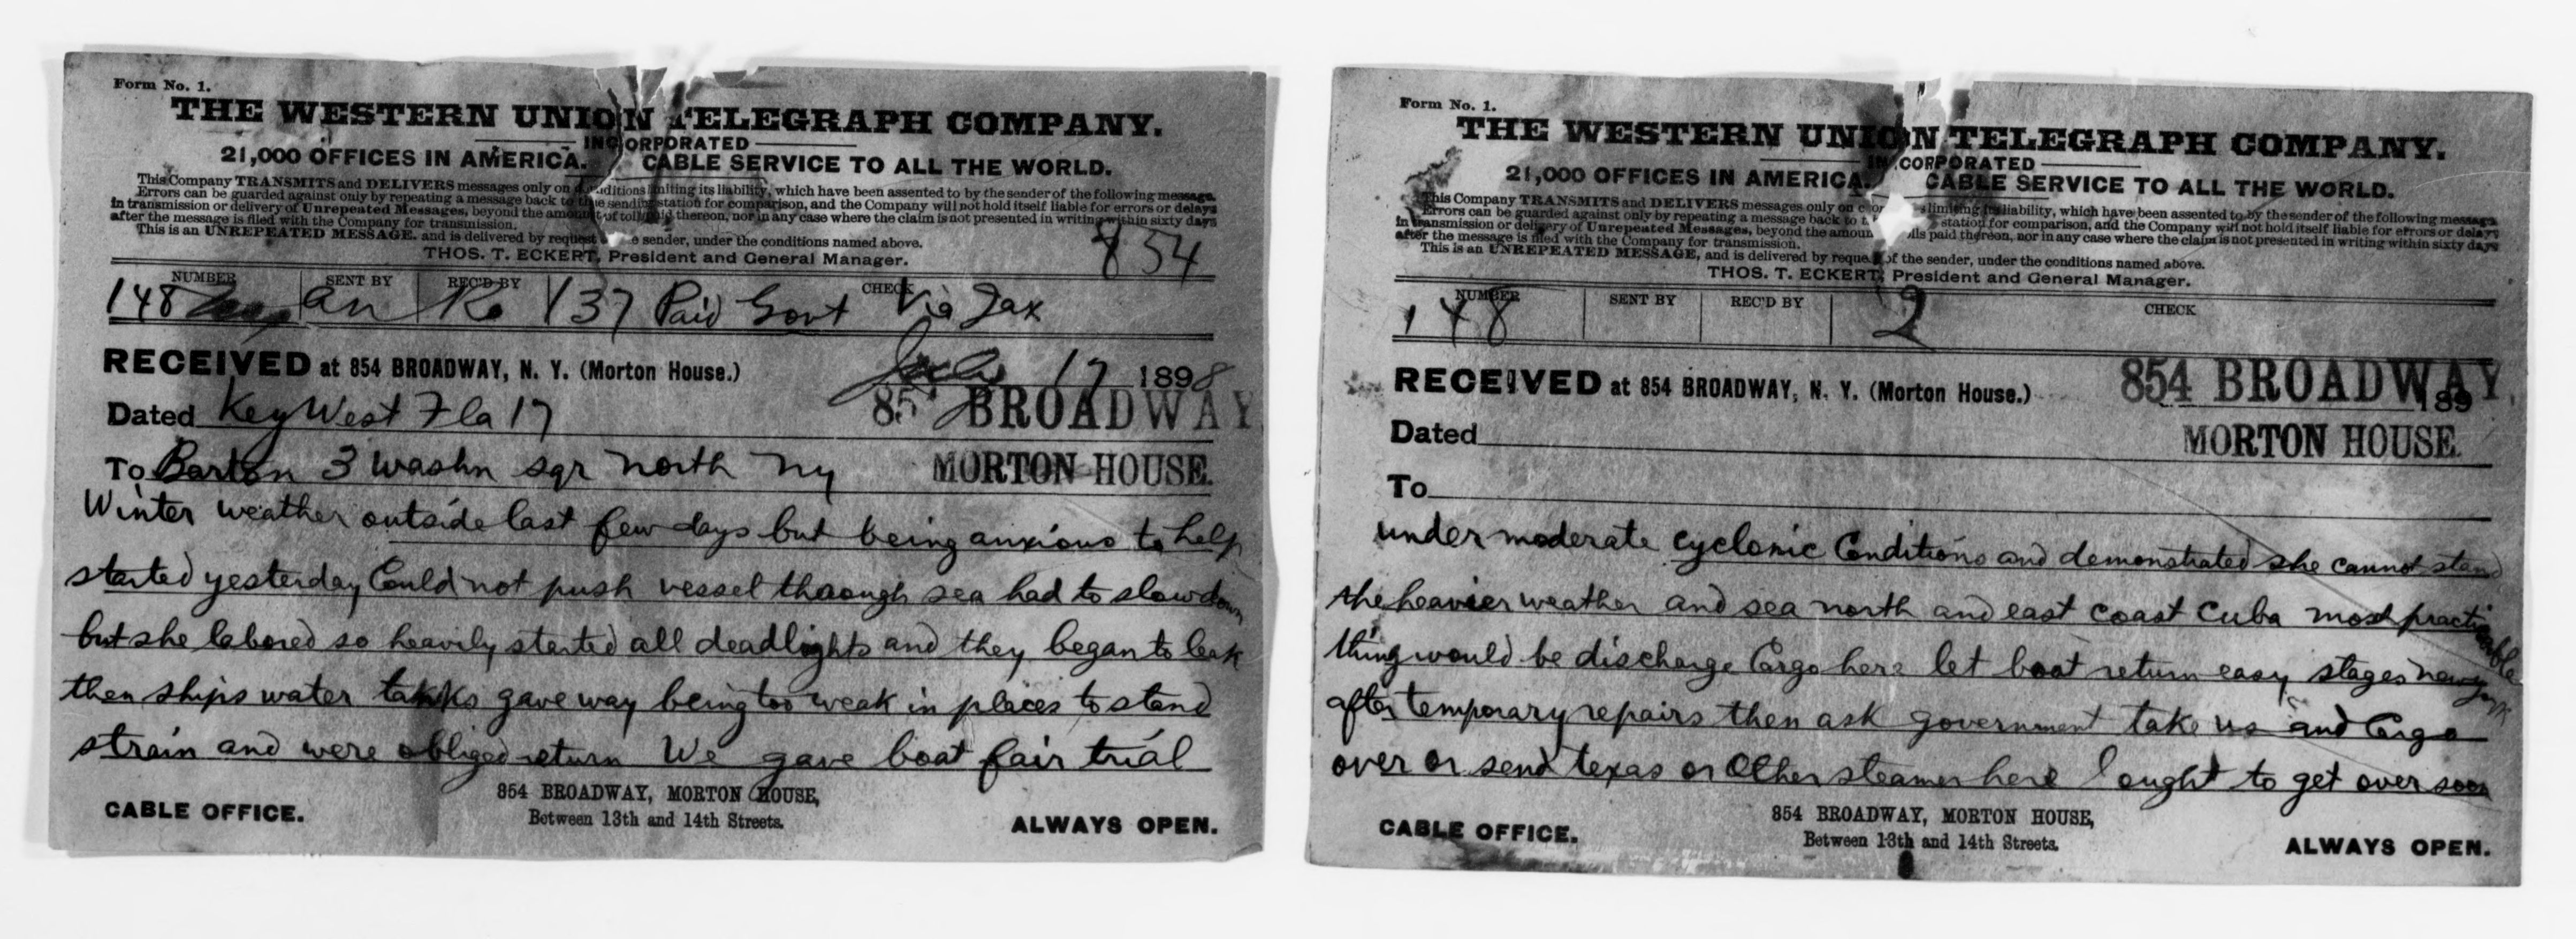 Form No. 1.
THE WESTERN UNION TELEGRAPH COMPANY.
INCORPORATED
21,000 OFFICES IN AMERICA. CABLE SERVICE TO ALL THE WORLD.
This Company TRANSMITS and DELIVERS messages only on conditions limiting its liability, which have been assented to by the sender of the following message.
Errors can be guarded against only by repeating a message back to the sending station for comparison, and the Company will not hold itself liable for errors or delays
in transmission or delivery of Unrepeated Messages, beyond the amount of tolls paid thereon, nor in any case where the claim is not presented in writing within sixty days
after the message is filed with the Company for transmission.
This is an UNREPEATED MESSAGE. and is delivered by request e sender, under the conditions named above.
THOS. T. ECKERT, President and General Manager.
854
NUMBER SENT BY REC'D BY CHECK
148 an Ko 137 Paid Govt Via Jax
RECEIVED at 854 BROADWAY, N. Y. (Morton House.) 17 1898
85 BROADWAY
Dated Key West Fla 17
To Barton 3 Washn sqr north ny
MORTON HOUSE.
Winter weather outside last few days but being anxious to help
started yesterday Could not push vessel through sea had to slow down
but she labored so heavily started all deadlights and they began to leak
then ships water tanks gave way being too weak in places to stand
strain and were obliged return We gave boat fair trial
854 BROADWAY, MORTON HOUSE,
CABLE OFFICE. Between 13th and 14th Streets. ALWAYS OPEN.
Form No. 1.
THE WESTERN UNION TELEGRAPH COMPANY.
INCORPORATED
21,000 OFFICES IN AMERICA. CABLE SERVICE TO ALL THE WORLD.
This Company TRANSMITS and DELIVERS messages only on limiting its liability, which have been assented to by the sender of the following message.
Errors can be guarded against only by repeating a message back to station for comparison, and the Company will not hold itself liable for errors or delays
in transmission or delivery of Unrepeated Messages, beyond the amoun lls paid thereon, nor in any case where the claim is not presented in writing within sixty days
after the message is filed with the Company for transmission.
This is an UNREPEATED MESSAGE, and is delivered by request of the sender, under the conditions named above.
THOS. T. ECKERT, President and General Manager.
NUMBER SENT BY REC'D BY CHECK
148 2
RECEIVED at 854 BROADWAY, N. Y. (Morton House.) 189
854 BROADWAY,
Dated
MORTON HOUSE.
To
under moderate cyclonic Conditions and demonstrated she cannot stand
the heavier weather and sea north and east coast Cuba most practicable
thing would be discharge Cargo here let boat return easy stages newyork
after temporary repairs then ask government take us and Cargo
over or send texas or Other steamer here I ought to get over soon
854 BROADWAY, MORTON HOUSE,
CABLE OFFICE. Between 13th and 14th Streets. ALWAYS OPEN.